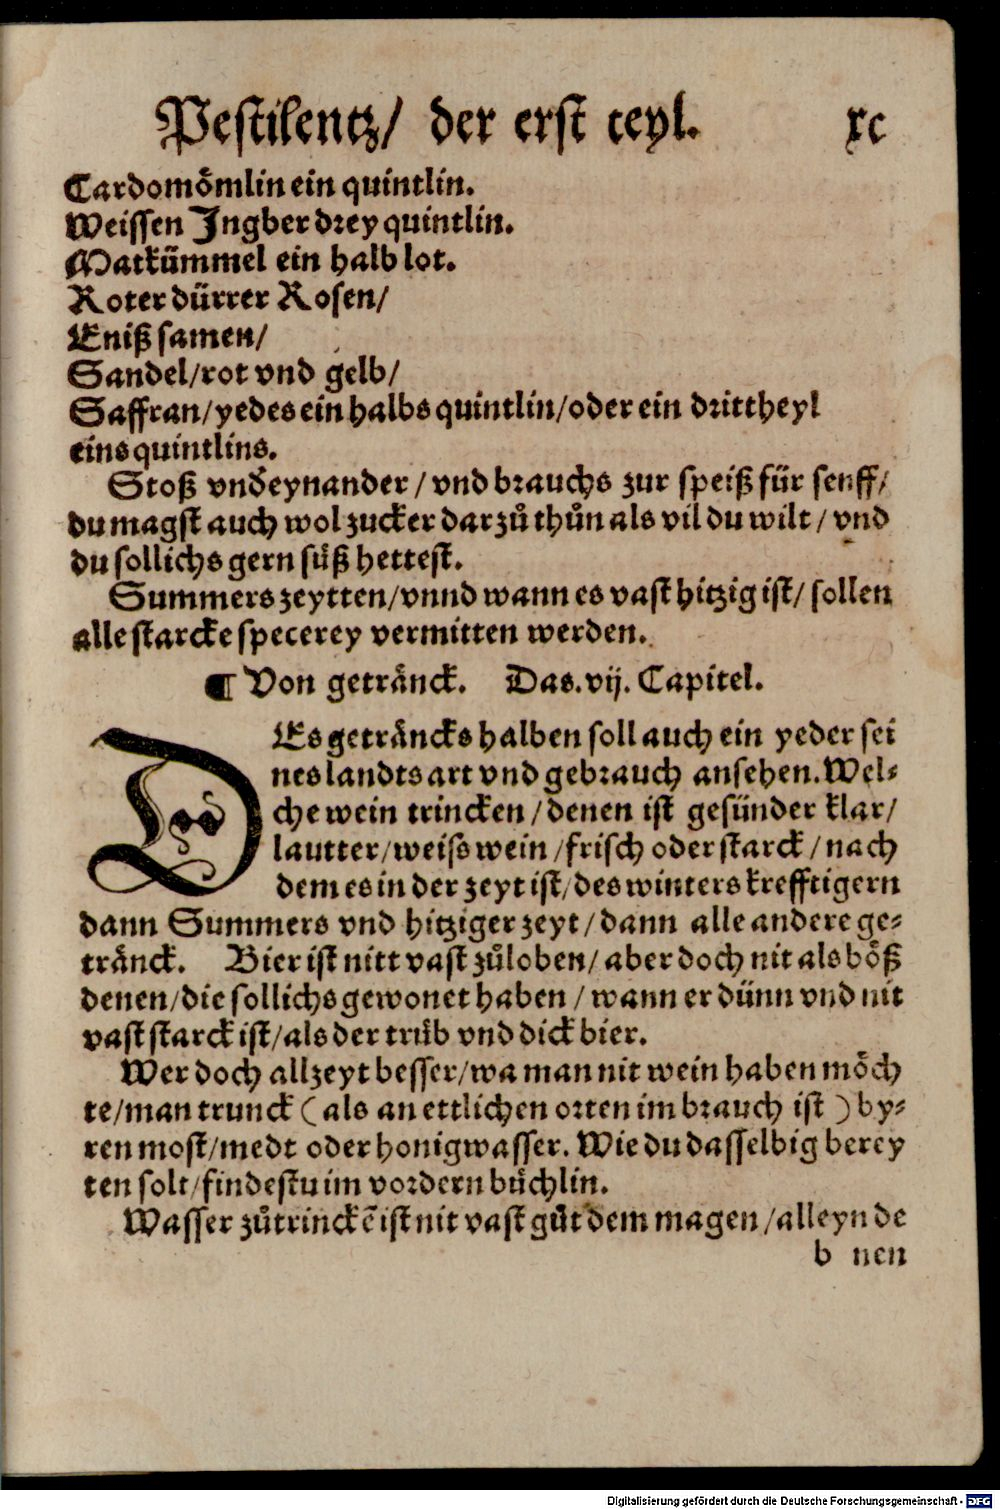 Pestilentz/ der erst teyl. xc
Cardomoͤmlin ein quintlin.
Weissen Jngber drey quintlin.
Matkuͤmmel ein halb lot.
Roter duͤrrer Rosen/
Eniß samen/
Sandel/rot vnd gelb/
Saffran/yedes ein halbs quintlin/oder ein drittheyl
eins quintlins.
Stoß vnd̕eynander / vnd brauchs zur speiß fuͤr senff/
du magst auch wol zucker dar zuͦ thuͦn als vil du wilt / vnd
du sollichs gern suͤß hettest.
Summers zeytten/vnnd wann es vast hitzig ist/ sollen
alle starcke specerey vermitten werden.
¶ Von getraͤnck. Das.vij. Capitel.
DEs getraͤncks halben soll auch ein yeder sei
nes landts art vnd gebrauch ansehen.Wel⸗
che wein trincken /denen ist gesuͤnder klar/
lautter/weiss wein /frisch oder starck / nach
dem es in der zeyt ist/des winters krefftigern
dann Summers vnd hitziger zeyt/dann alle andere ge⸗
traͤnck. Bier ist nitt vast zuͦloben/ aber doch nit als boͤß
denen/die sollichs gewonet haben / wann er duͤnn vnd nit
vast starck ist/als der truͤb vnd dick bier.
Wer doch allzeyt besser/wa man nit wein haben moͤch
te/man trunck (als an ettlichen orten im brauch ist ) by⸗
ren most/medt oder honigwasser. Wie du dasselbig berey
ten solt/findestu im vordern buͤchlin.
Wasser zuͦtrinckē ist nit vast guͦt dem magen /alleyn de
b nen
Digitalisierung gefördert durch die Deutsche Forschungsgemeinschaft - DFG